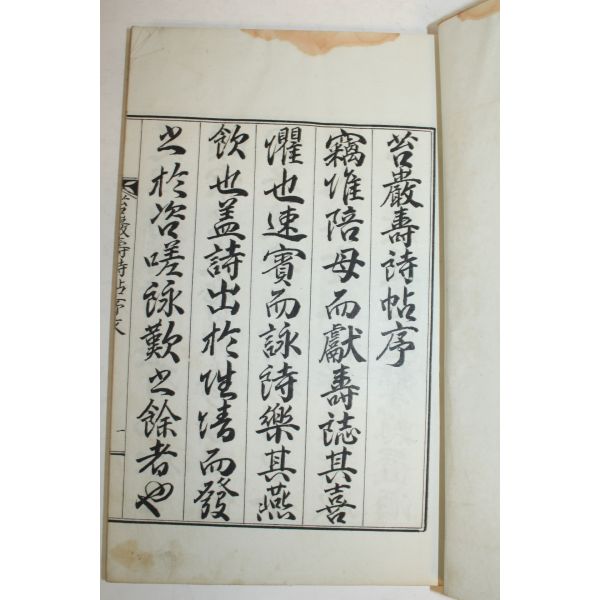 苔巖壽詩帖序
竊惟陪母而獻壽誌其喜
懼也速賓而詠詩樂其燕
飲也盖詩出於性情而發
之於咨嗟詠歎之餘者也
苔巖壽詩帖序文 一